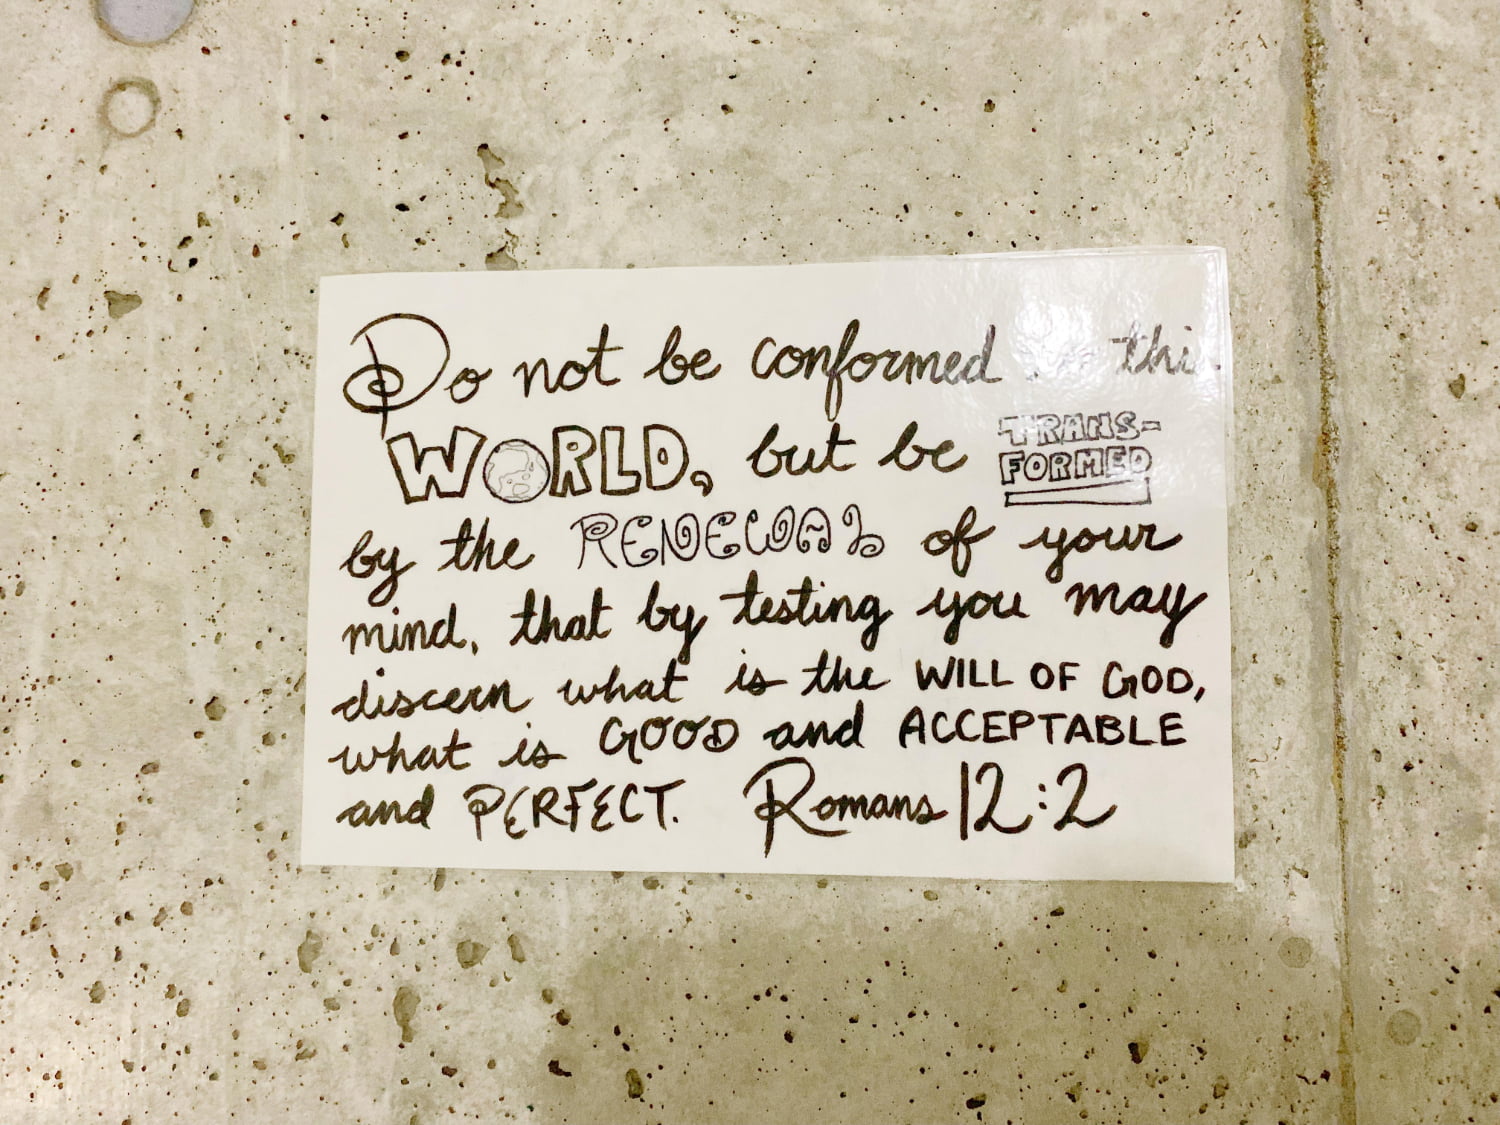 Do not be conformed this
WORLD, but be TRANS-
FORMED
by the RENEWAL of your
mind, that by testing you may
discern what is the WILL OF GOD,
what is GOOD and ACCEPTABLE
and PERFECT. Romans 12:2